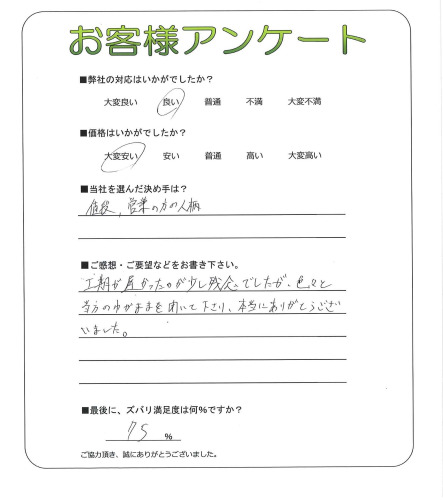 お客様アンケート
■弊社の対応はいかがでしたか？
大変良い 良い 普通 不満 大変不満
■価格はいかがでしたか？
大変安い 安い 普通 高い 大変高い
■当社を選んだ決め手は？
値段、営業の方の人柄
■ご感想・ご要望などをお書き下さい。
工期が長かったのが少し残念でしたが、色々と
当方のわがままを聞いて下さり、本当にありがとうござ
いました。
■最後に、ズバリ満足度は何％ですか？
75 %
ご協力頂き、誠にありがとうございました。